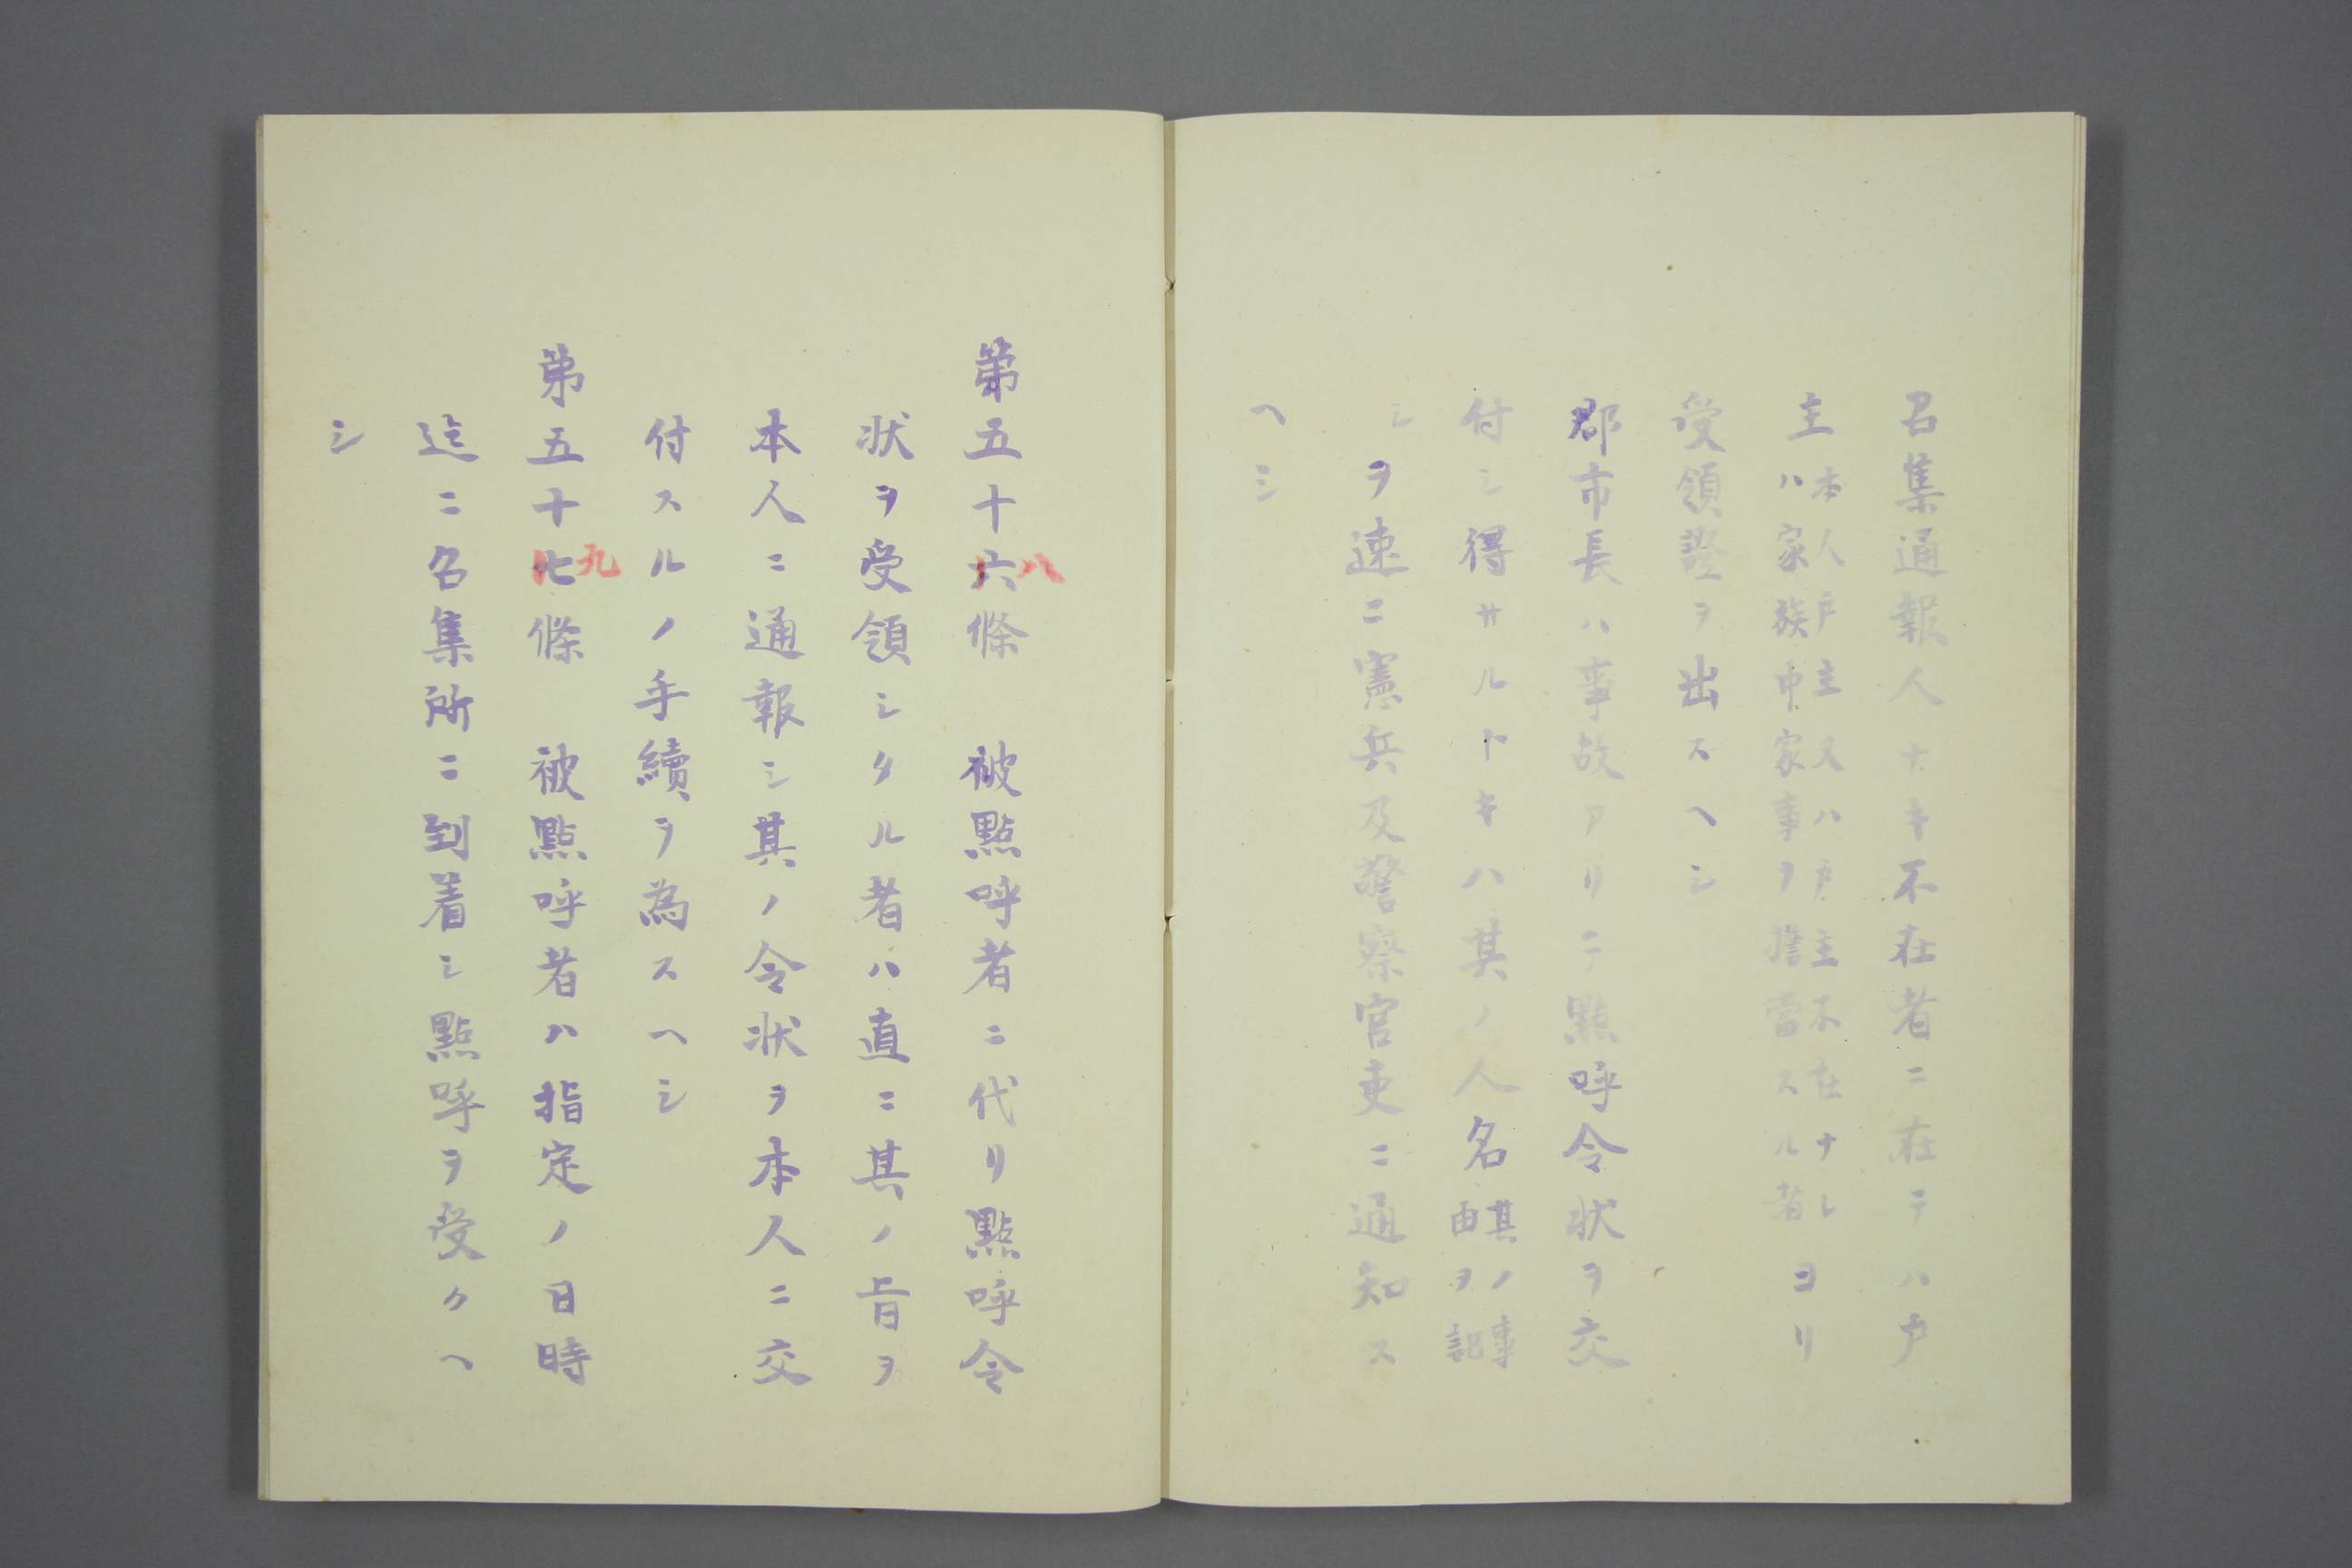 召集通報人ナキ不在者ニ在テハ戸
主本人戸主又ハ戸主不在ナレハ家族中家事ヲ擔當スル者ヨリ
受領證ヲ出スヘシ
郡市長ハ事故アリテ點呼令状ヲ交
付シ得サルトキハ其ノ人名其ノ事由ヲ記シ
ヲ速ニ憲兵及警察官吏ニ通知ス
ヘシ
第五十六八條 被點呼者ニ代リ點呼令
状ヲ受領シタル者ハ直ニ其ノ旨ヲ
本人ニ通報シ其ノ令状ヲ本人ニ交
付スルノ手續ヲ為スヘシ
第五十七九條 被點呼者ハ指定ノ日時
迄ニ召集所ニ到着シ點呼ヲ受クヘ
シ